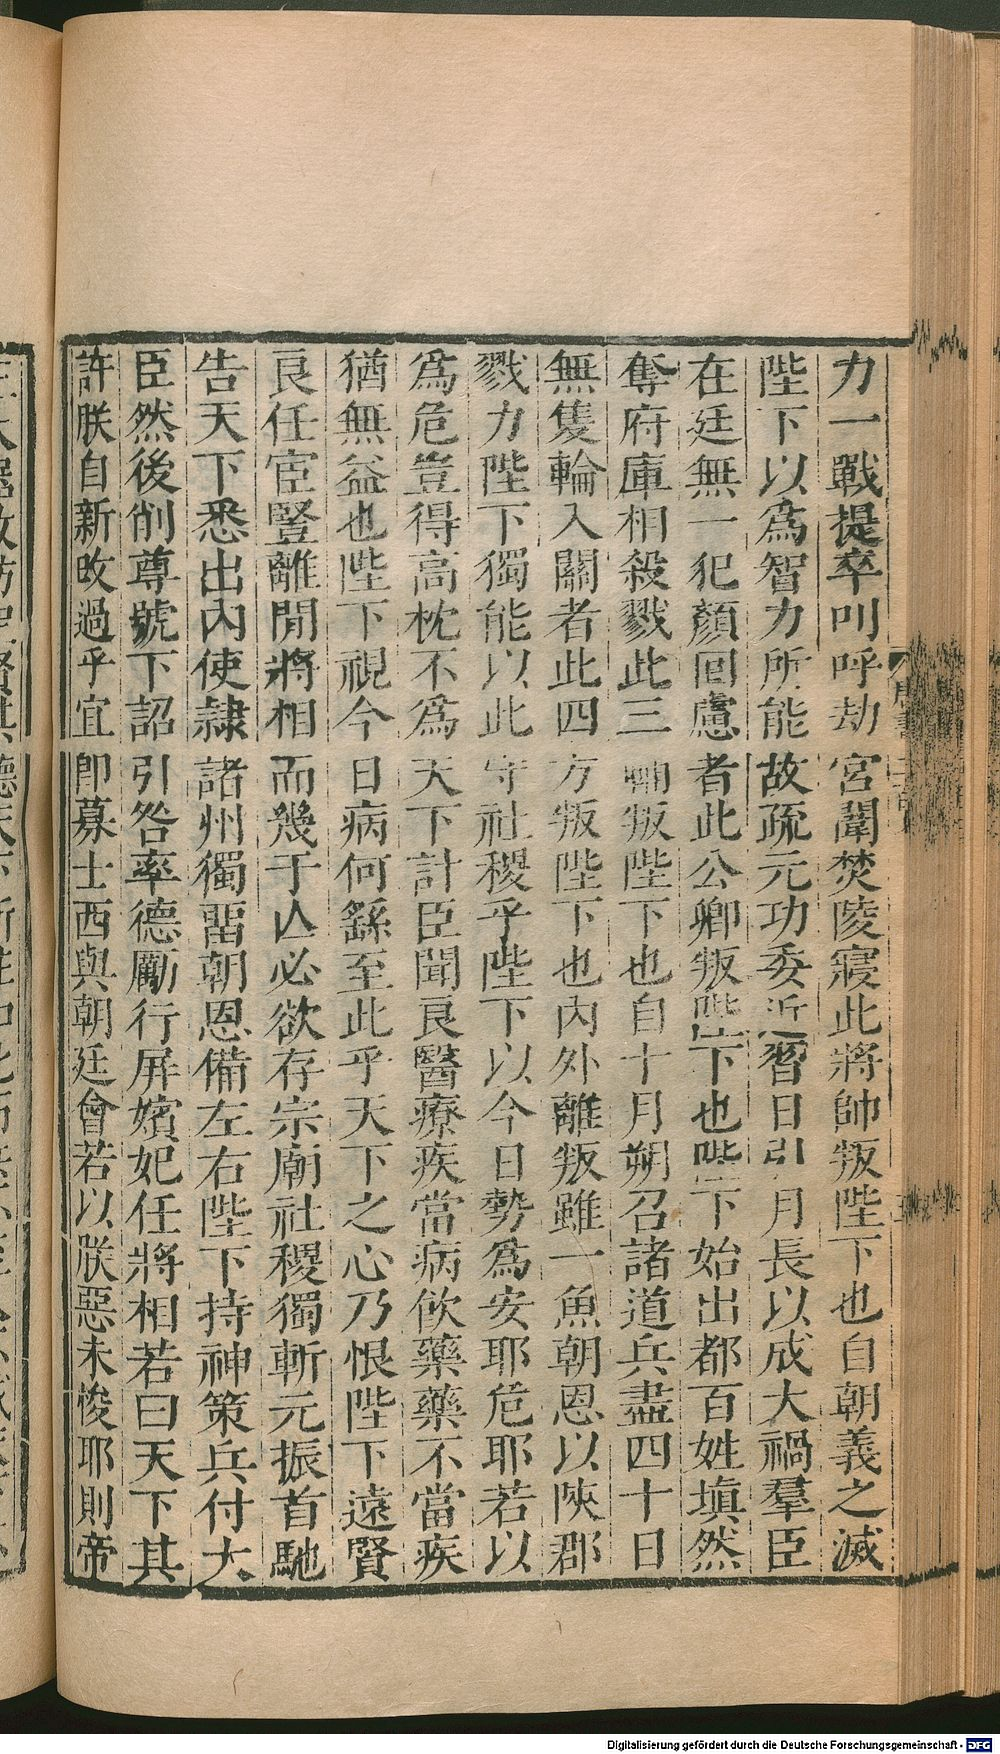 力一戰提卒叫呼劫宮闈焚陵寢此將帥叛陛下也自朝義之滅
陛下以爲智力所能故疏元功委近習日引月長以成大禍羣臣
在廷無一犯顏回慮者此公卿叛陛下也陛下始出都百姓填然
奪府庫相殺戮此三輔叛陛下也自十月朔召諸道兵盡四十日
無隻輪入關者此四方叛陛下也內外離叛雖一魚朝恩以陝郡
戮力陛下獨能以此守社稷乎陛下以今日勢爲安耶危耶若以
爲危豈得高枕不爲天下計臣聞良醫療疾當病飲藥藥不當疾
猶無益也陛下視今日病何繇至此乎天下之心乃恨陛下遠賢
良任宦豎離間將相而幾于亾必欲存宗廟社稷獨斬元振首馳
告天下悉出內使隸諸州獨畱朝恩備左右陛下持神策兵付大
臣然後削尊號下詔引咎率德勵行屏嬪妃任將相若曰天下其
許朕自新改過乎宜即募士西與朝廷會若以朕惡未悛耶則帝
Digitalisierung gefördert durch die Deutsche Forschungsgemeinschaft - DFG